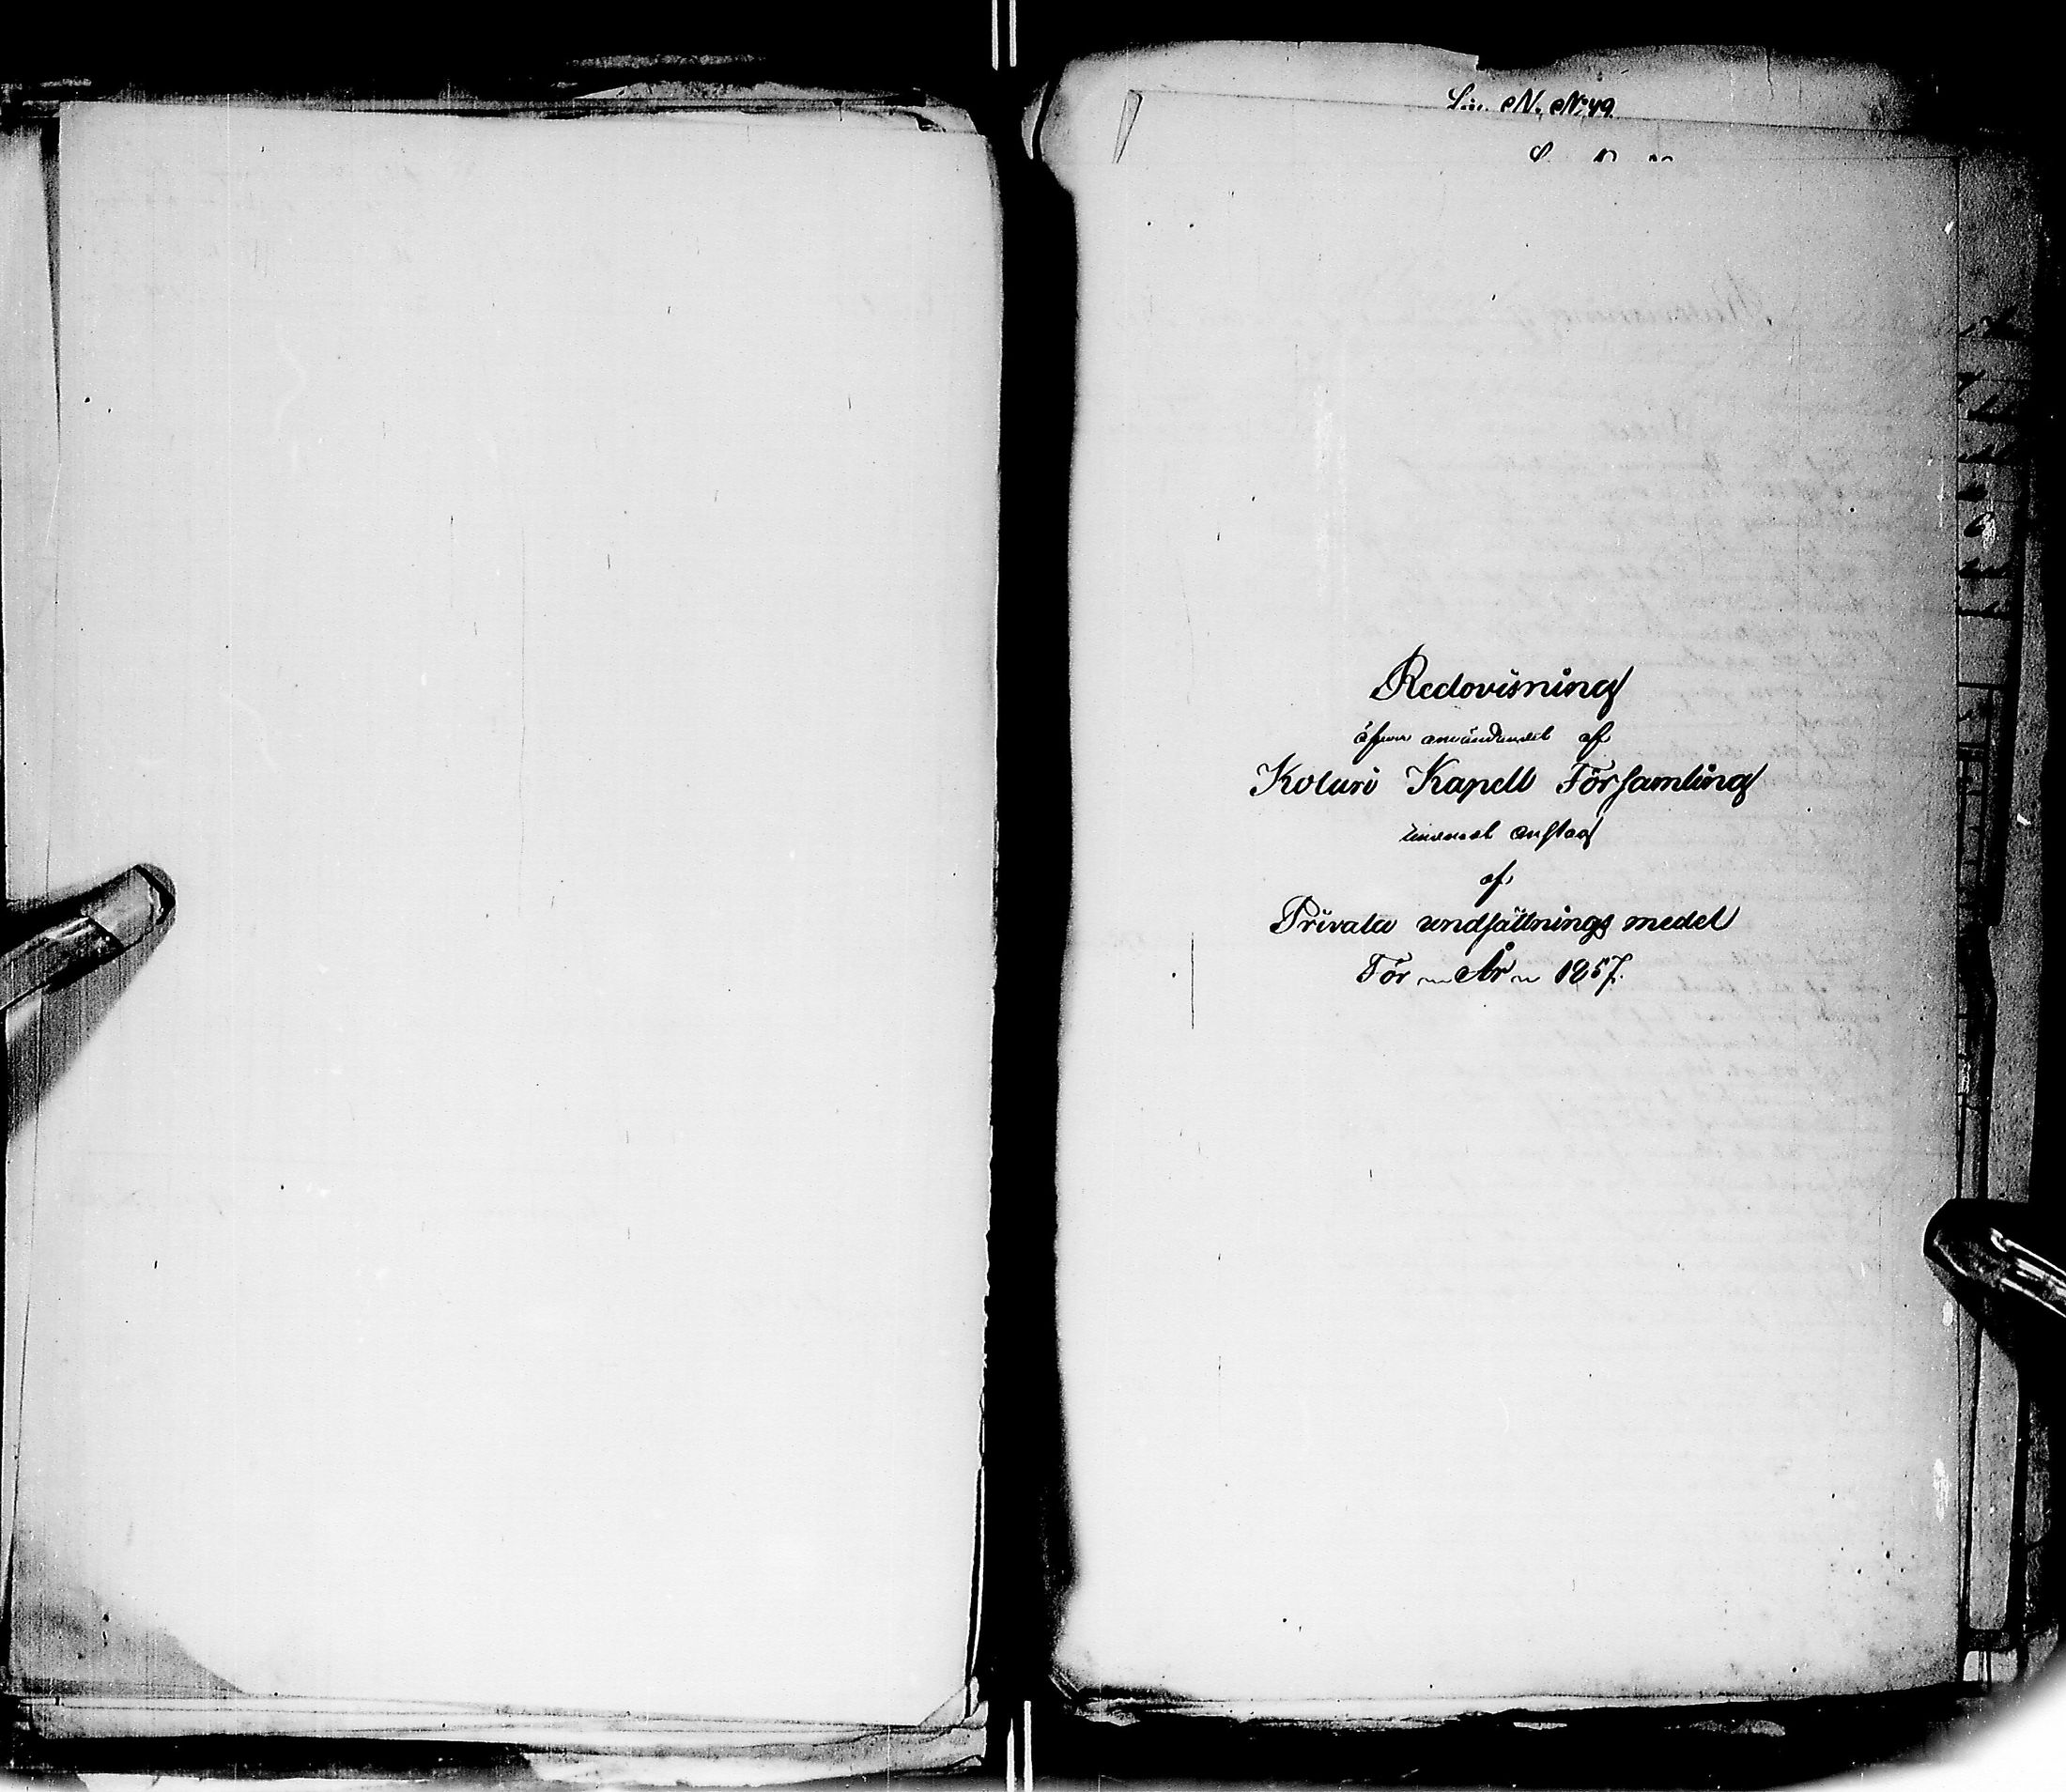 Litt. N. No 49.
Redovisning
öfver användandet af
Kolari Kapell Församling
anslag
af
Privata undsättnings medel
För år 1857.